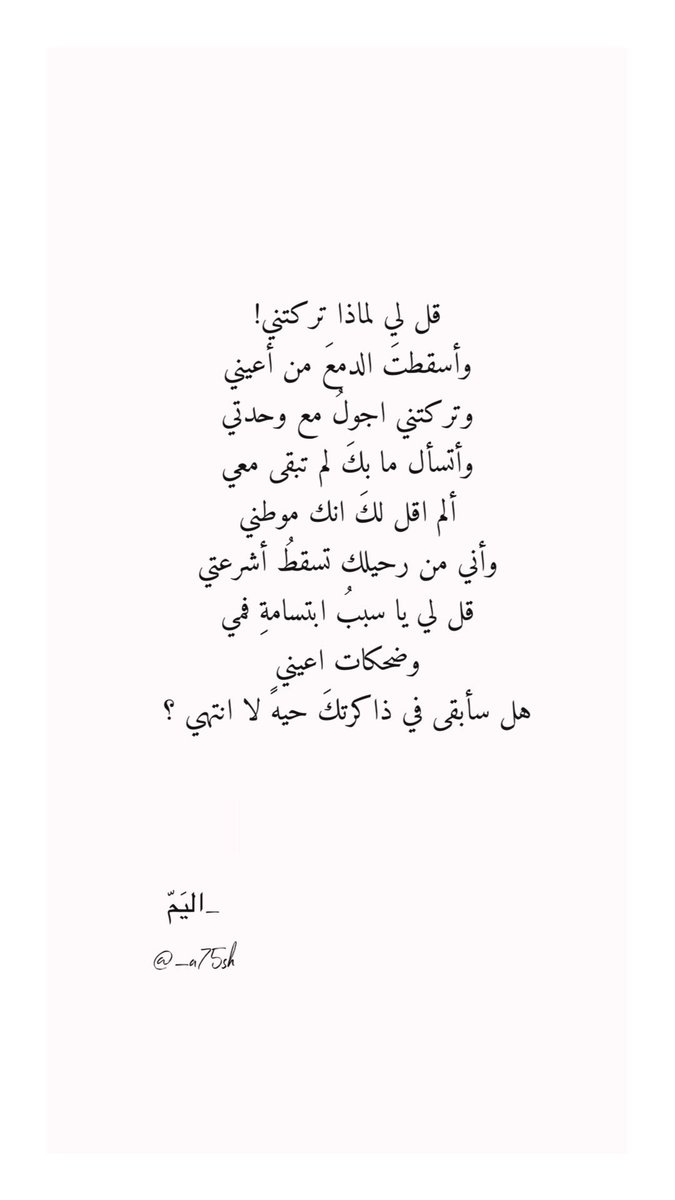 قل لي لماذا تركتني!
وأسقطتَ الدمعَ من أعيني
وتركتني اجولُ مع وحدتي
وأتسأل ما بكَ لم تبقى معي
ألم اقل لكَ انك موطني
وأني من رحيلك تسقطُ أشرعتي
قل لي يا سببُ ابتسامةِ فمي
وضحكات اعيني
هل سأبقى في ذاكرتكَ حيهً لا انتهي ؟
_اليَمّ
@_a75sh